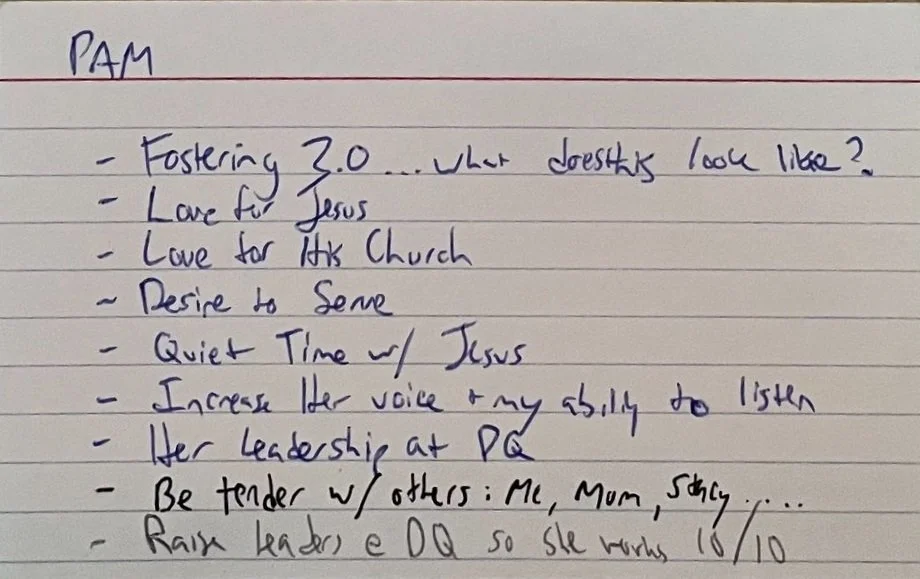 PAM
- Fostering 3.0 ... what does this look like?
- Love for Jesus
- Love for His Church
- Desire to Serve
- Quiet Time w/ Jesus
- Increase Her voice + my ability to listen
- Her Leadership at DQ
- Be tender w/ others: Me, Mom, Stacy ....
- Raise Leaders @ DQ so she works 10/10